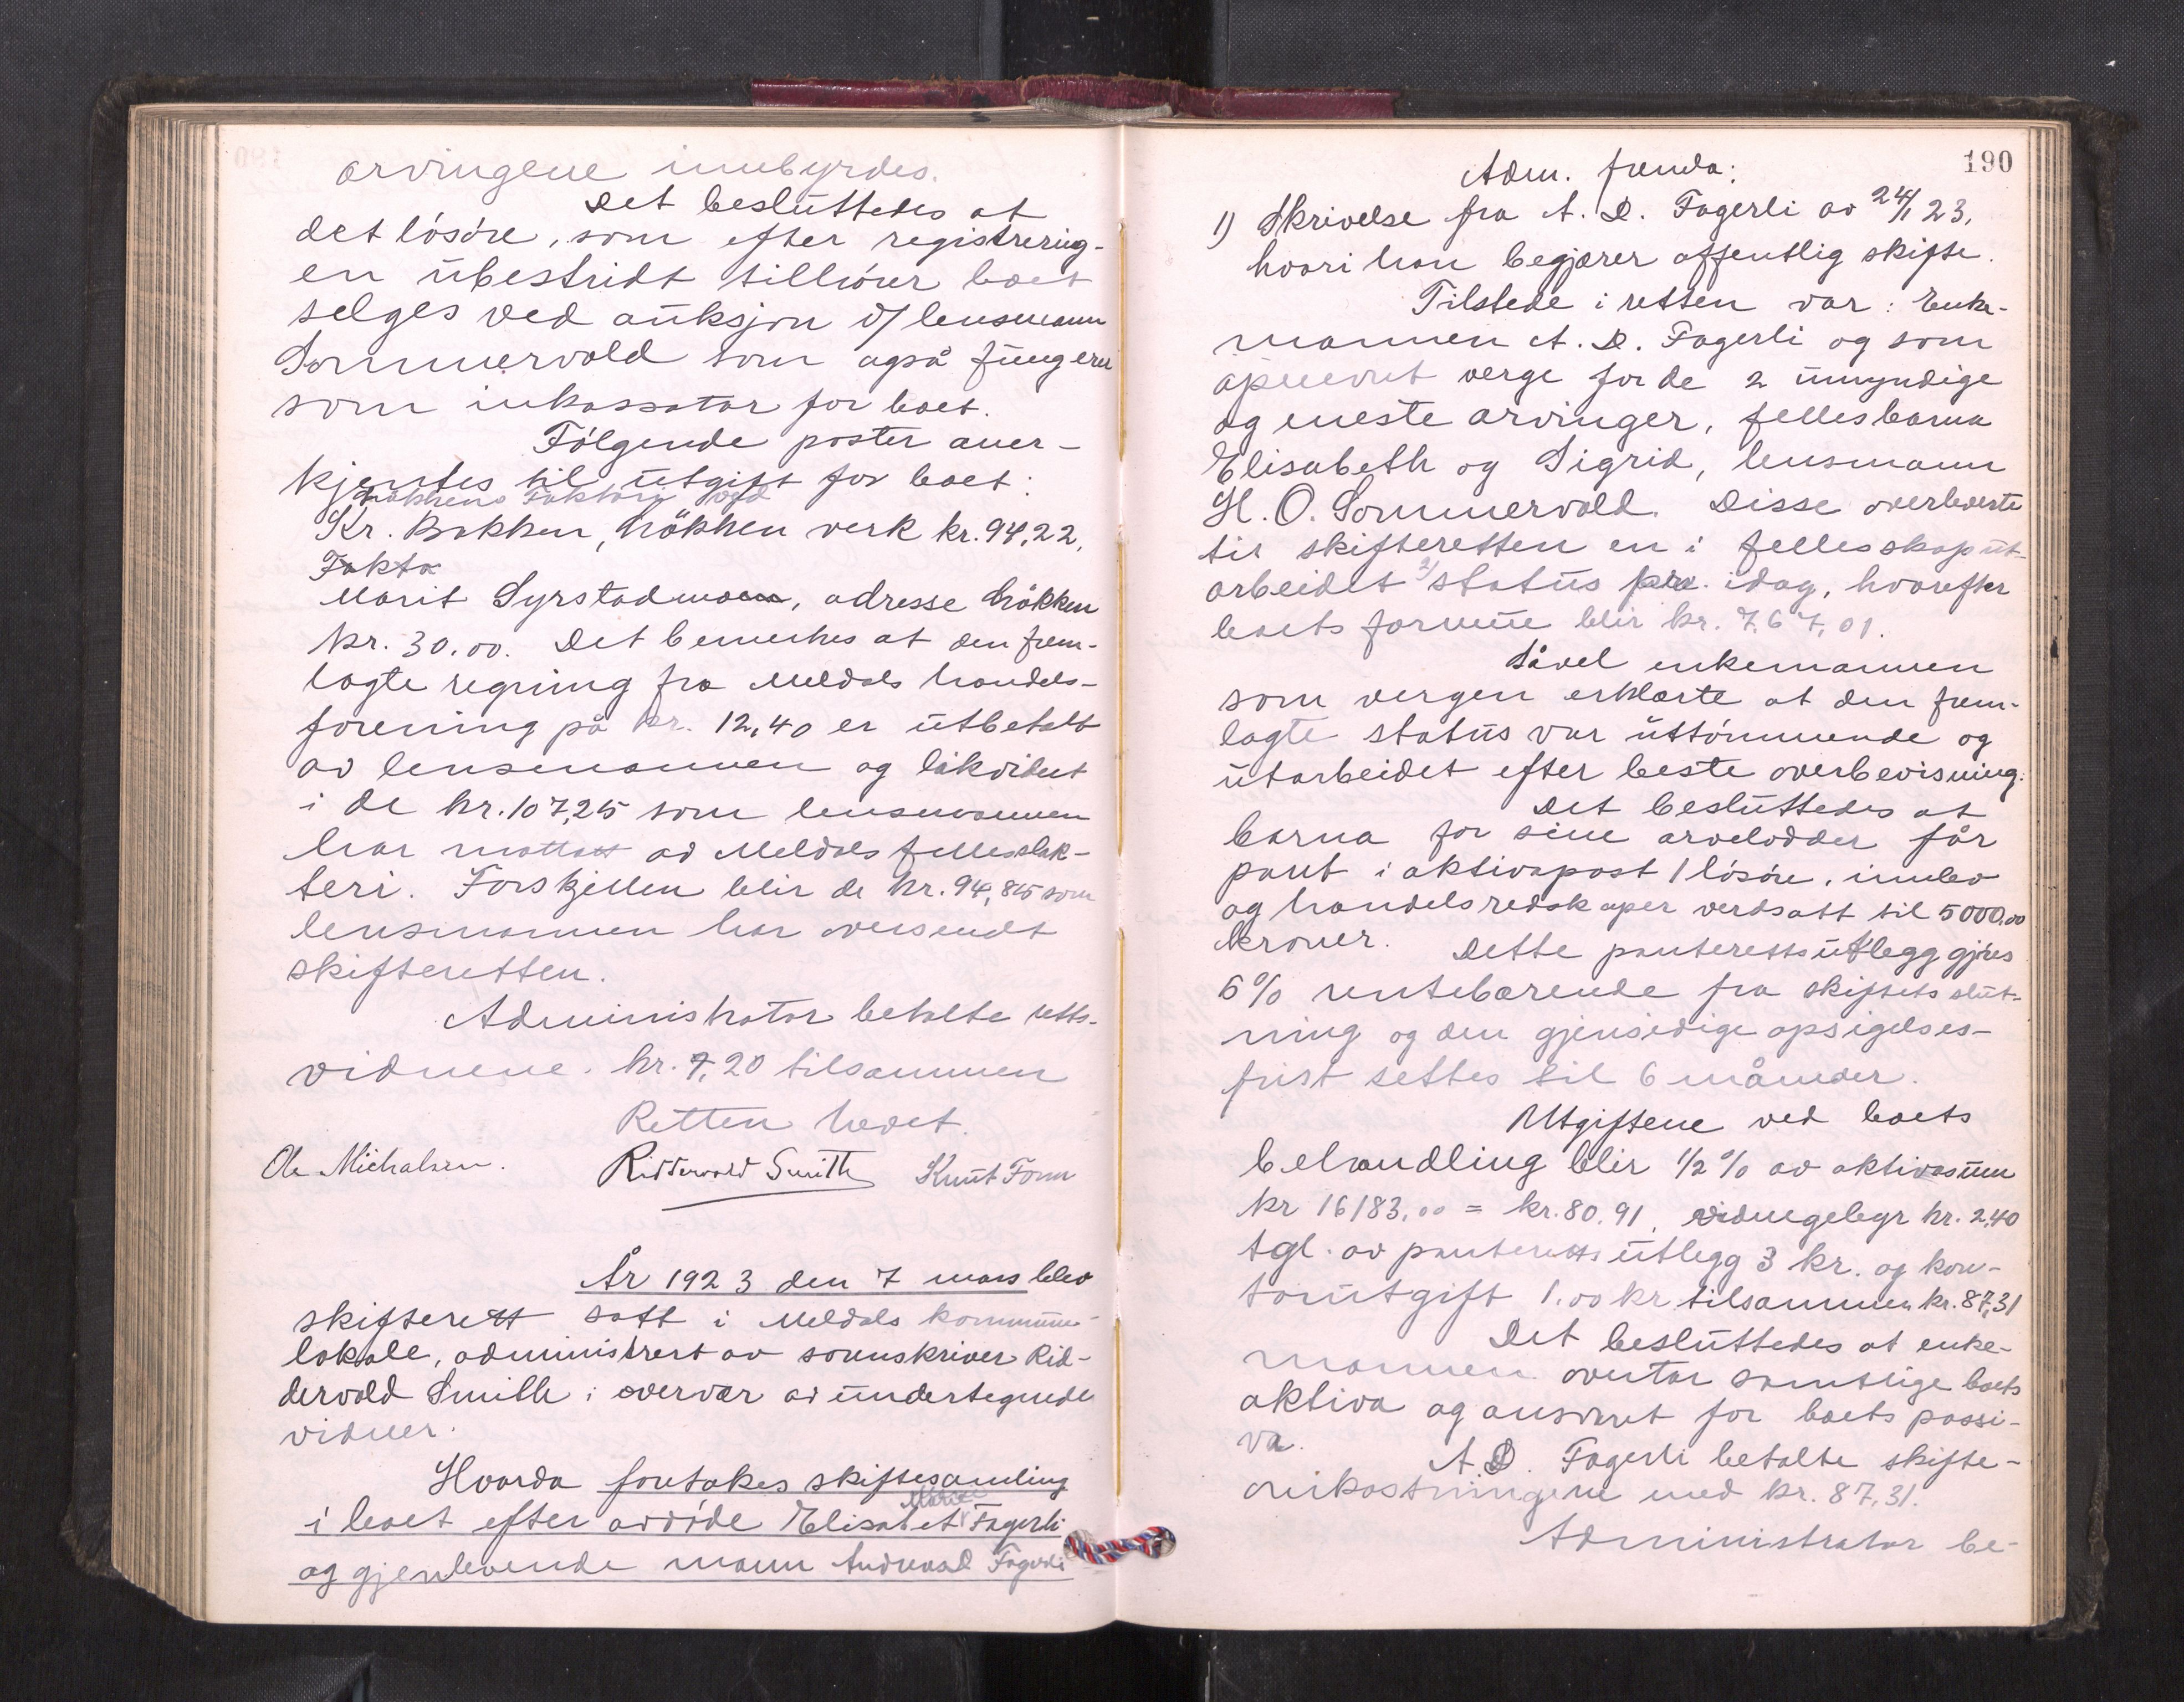 arvingene innbyrdes.
Det besluttedes at
det lösöre, som efter registrering-
en ubestridt tilhörer boet
selges ved auksjon v/ lensmann
Sommervold som også fungerer
som inkassator for boet.
Følgende poster aner-
kjentes til utgift for boet:
Løkkens Faktori ved
Kr. Bakken, Løkken verk kr. 94,22.
Fakto
Marit Syrstadmoen, adresse Løkken
kr. 30.00. Det bemerkes at den frem-
lagte regning fra Meldals handels-
forening på kr. 12,40 er utbetalt
av lensmannen og likvidert
i de kr. 107,25 som lensmannen
har mottatt av Meldals fellesslak-
teri. Forskjellen blir de kr. 94,85 som
lensmannen har oversendt
skifteretten.
Administrator betalte retts-
vidnene kr. 7,20 tilsammen
Retten hevet.
Ole Michalsen. Riddervold Smith Knut Fonn
År 1923 den 7 mars blev
skifterett satt i Meldals kommune-
lokale, administrert av sorenskriver Rid-
dervold Smith i overvær av undertegnede
vidner.
Hvorda foretokes skiftesamling
Marie
i boet efter avdöde Elisabet Fagerli
og gjenlevende mann Andreas D Fagerli
190
Adm. fremla:
1) Skrivelse fra A. D. Fagerli av 24/1 23,
hvori han begjærer offentlig skifte.
Tilstede i retten var: Enke-
mannen A. D. Fagerli og som
opnevnt verge for de 2 umyndige
og eneste arvinger, fellesbarna
Elisabeth og Sigrid, lensmann
H. O. Sommervold. Disse overleverte
til skifteretten en i fellesskap ut-
arbeidet 2) status pr. idag, hvorefter
boets formue blir kr. 767,01.
Såvel enkemannen
som vergen erklærte at den frem-
lagte status var uttömmende og
utarbeidet efter beste overbevisning.
Det besluttedes at
barna for sine arvelodder får
pant i aktivapost 1 lösöre, innbo
og handelsredskaper verdsatt til 5000.00
kroner. Dette panterettsutlegg gjöres
6% rentebærende fra skiftets slut-
ning og den gjensidige opsigelses-
frist settes til 6 måneder.
Utgiftene ved boets
behandling blir 1/2 % av aktivasum
kr 16183,00 = kr. 80.91, vidnegebyr kr. 2,40
tgl. av panterettsutlegg 3 kr. og kon-
torutgift 1.00 kr tilsammen kr. 87,31
Det besluttedes at enke-
mannen overtar samtlige boets
aktiva og ansvaret for boets passi-
va.
A. D. Fagerli betalte skifte-
omkostningene med kr. 87,31.
Administrator be-